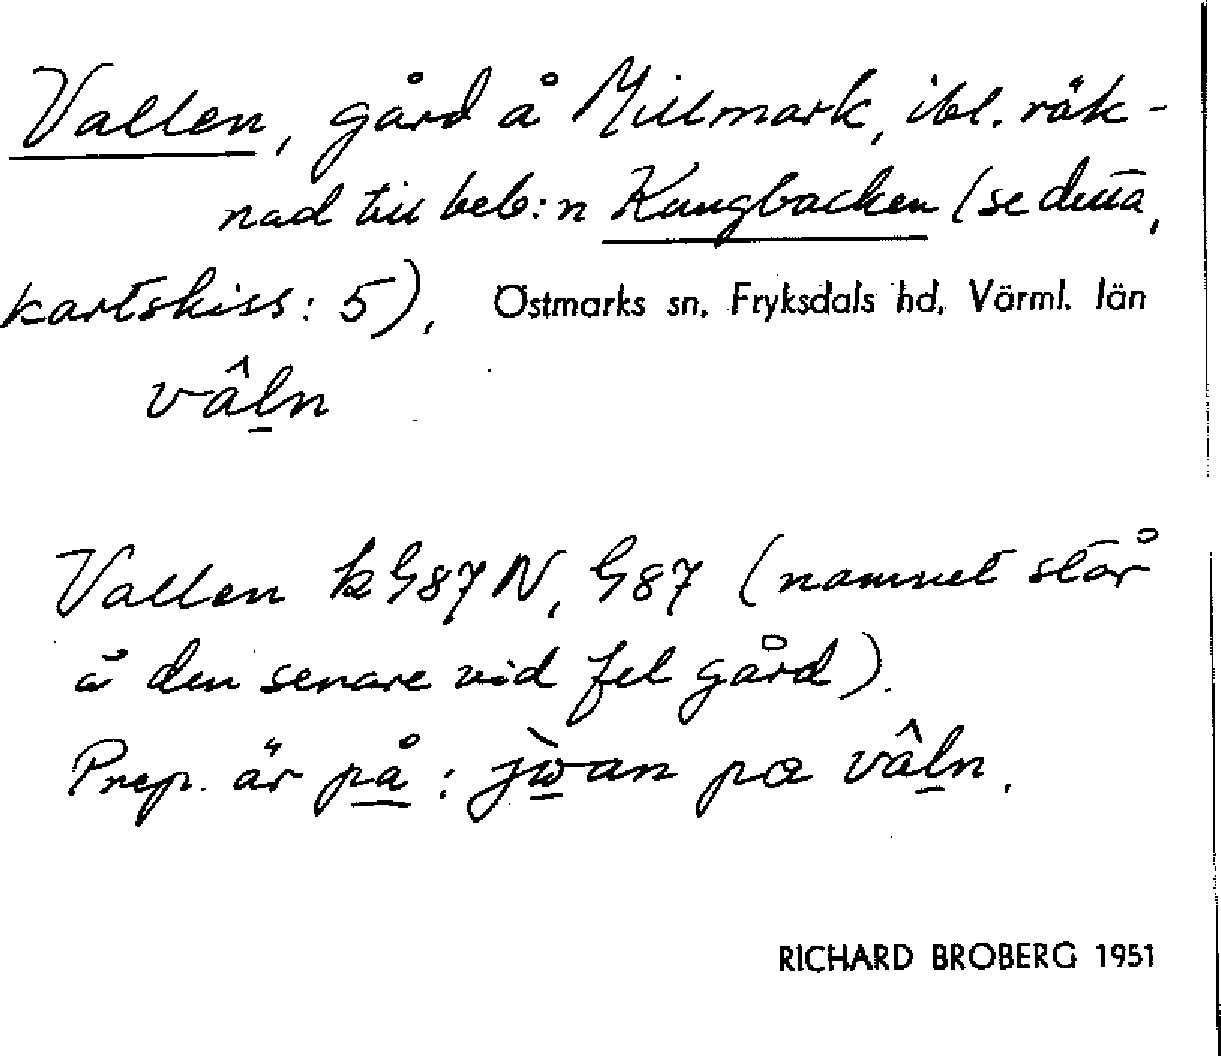 Vallen, gård å Millmark, ibl. räk-
nad till beb:n Kungbacken (se detta,
kartskiss: 5), Östmarks sn, Fryksdals hd, Värml. län
vâln
Vallen k G87N, G87 (namnet står
å den senare vid fel gård).
Prep. är på: jẁan pa vâln.
RICHARD BROBERG 1951